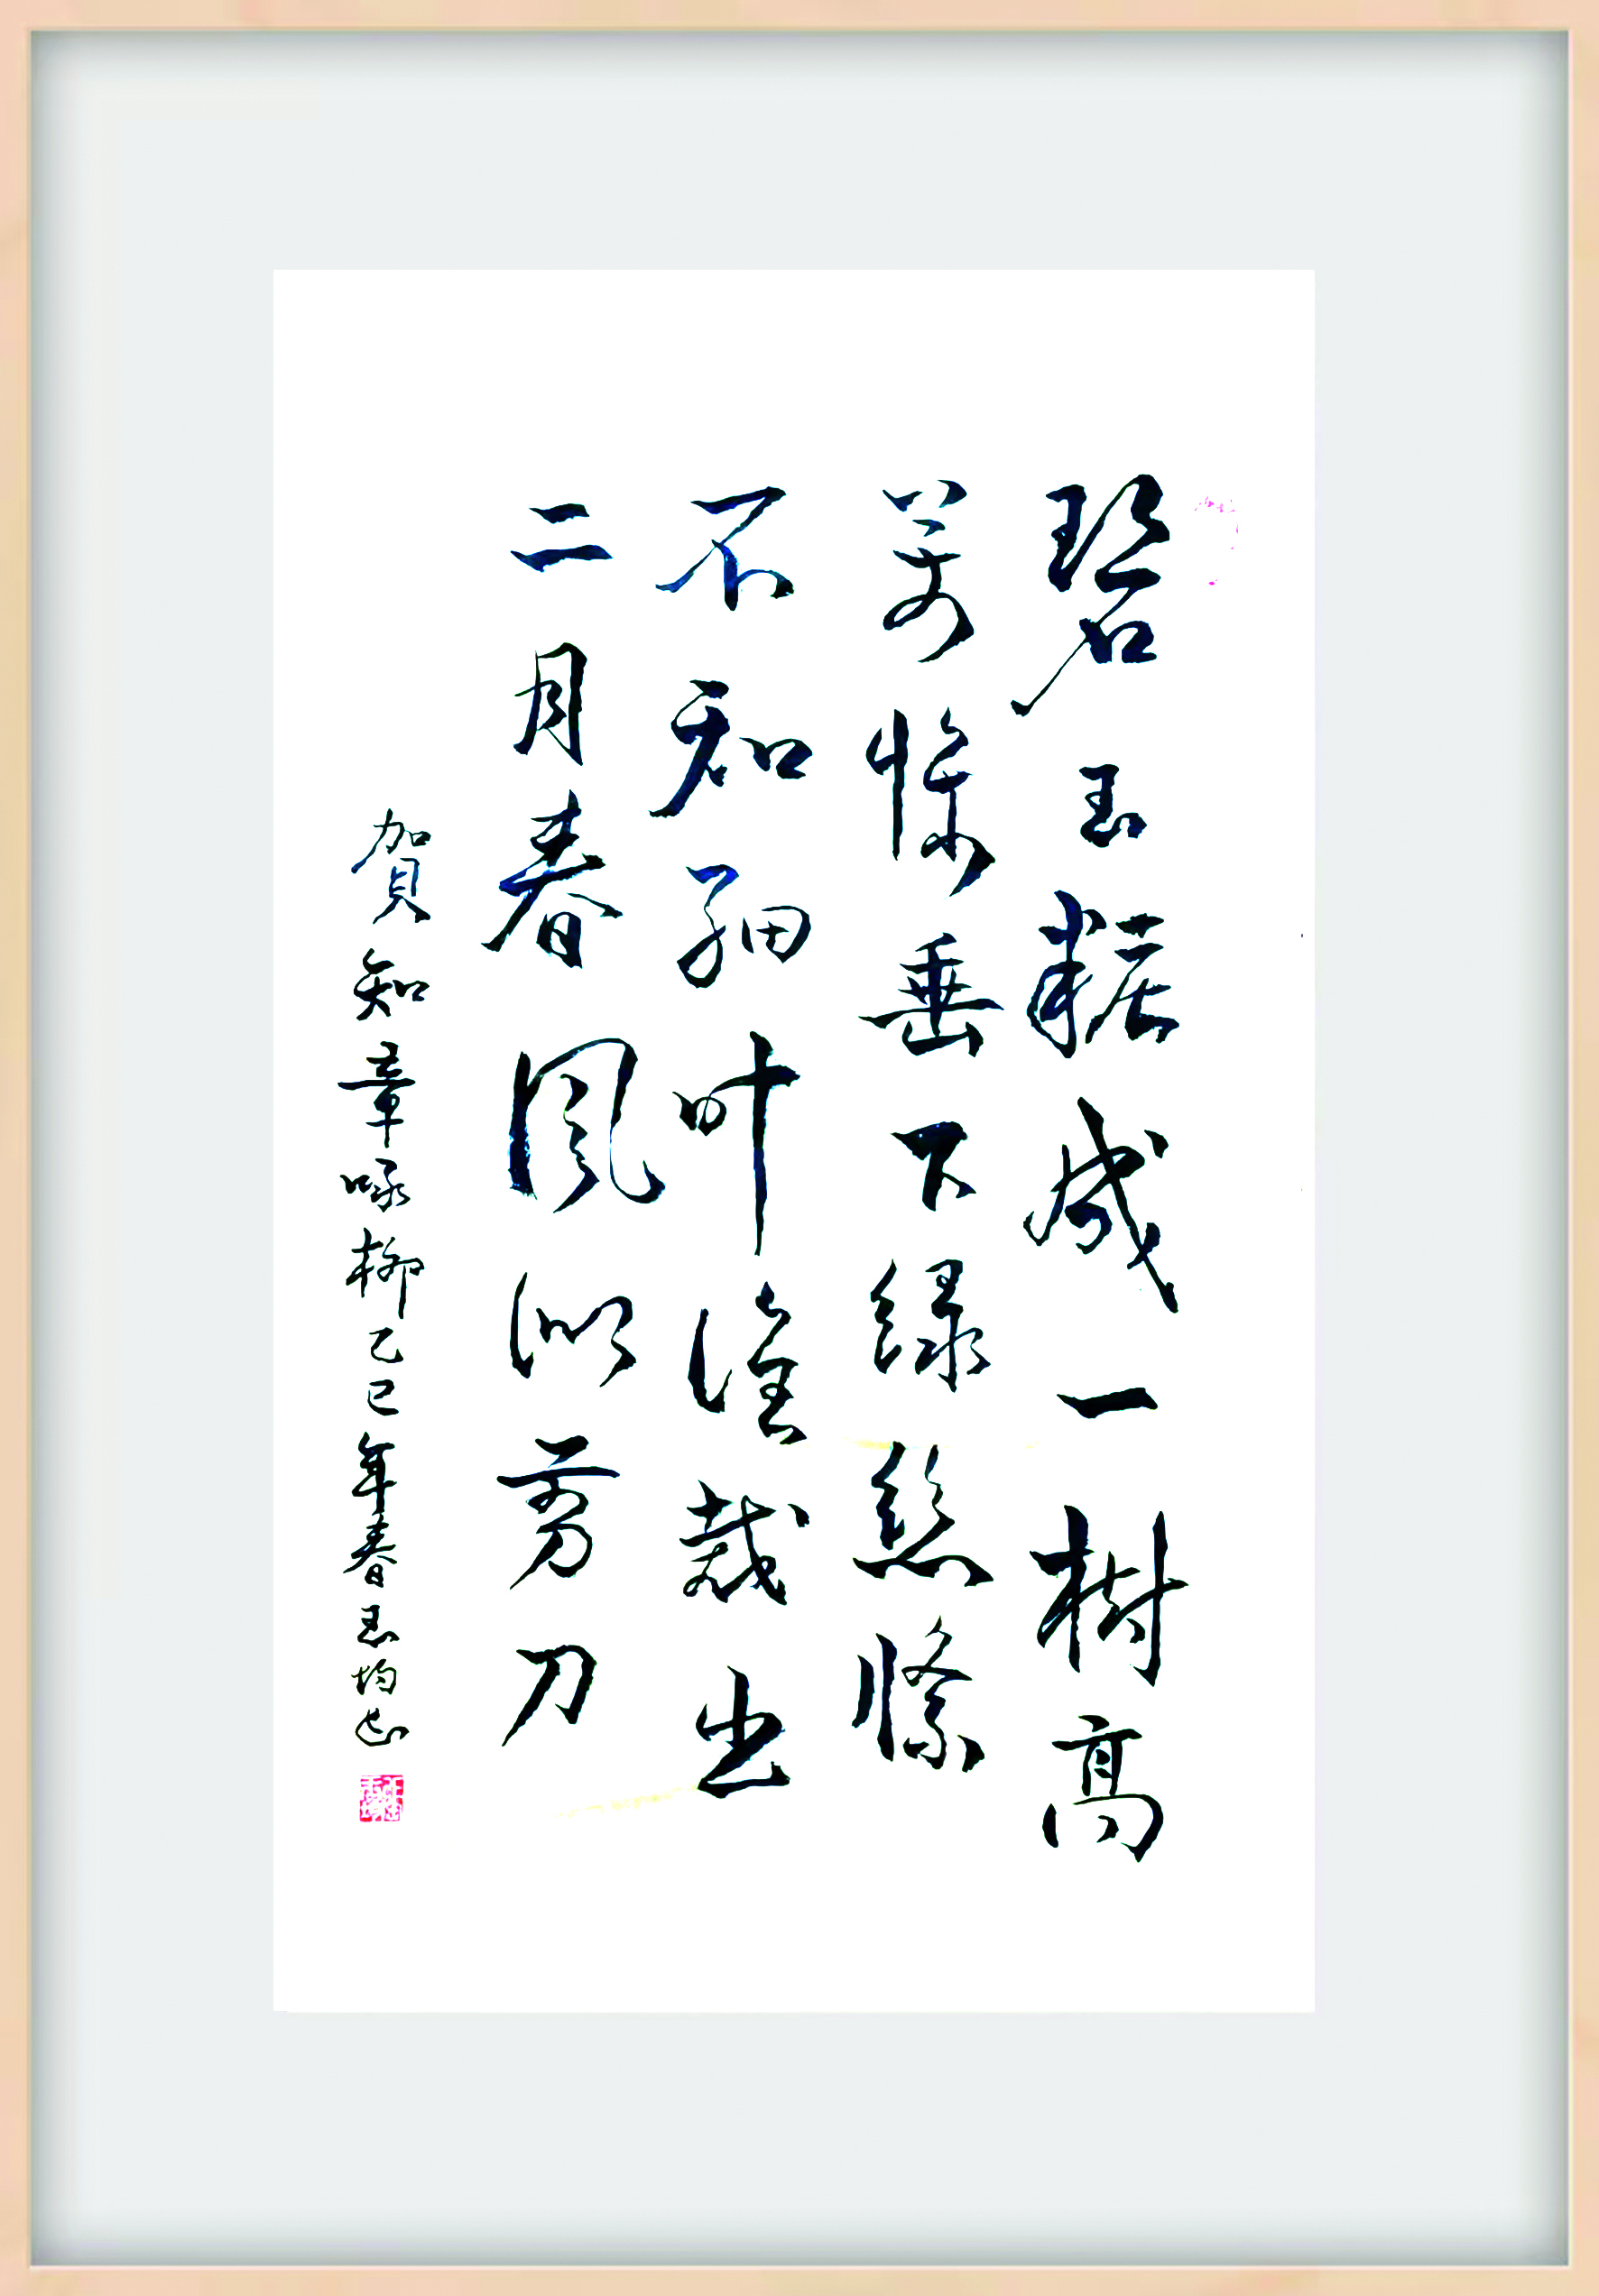 碧玉粧成一樹高
萬條垂下緑絲絛
不知細叶誰裁出
二月春風似剪刀
賀知章咏柳乙巳年春玉均